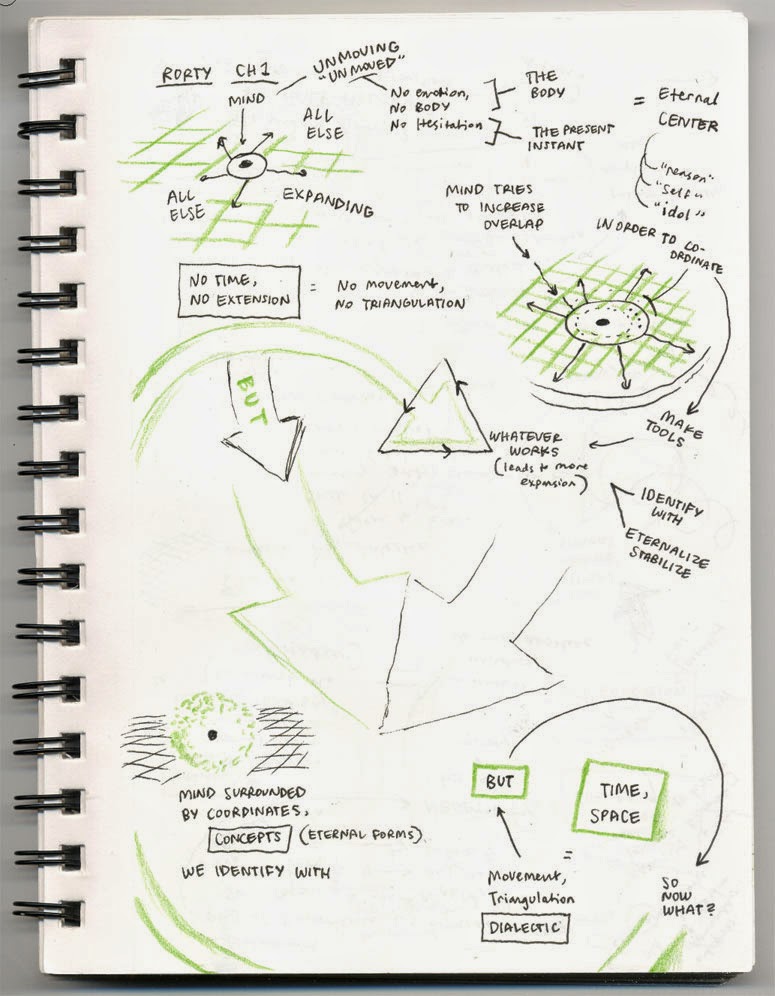 RORTY CH1
UNMOVING
"UNMOVED"
MIND
ALL
ELSE
ALL
ELSE
EXPANDING
No emotion,
NO BODY
No Hesitation
THE
BODY
THE PRESENT
INSTANT
= Eternal
CENTER
"reason"
"self"
"idol"
MIND TRIES
TO INCREASE
OVERLAP
IN ORDER TO CO-
ORDINATE
NO TIME,
NO EXTENSION
= No movement,
NO TRIANGULATION
BUT
MAKE
TOOLS
WHATEVER
WORKS
(leads to more
expansion)
IDENTIFY
WITH
ETERNALIZE
STABILIZE
MIND SURROUNDED
BY COORDINATES,
CONCEPTS (ETERNAL FORMS)
WE IDENTIFY WITH
BUT
TIME,
SPACE
=
Movement,
Triangulation
DIALECTIC
SO
NOW
WHAT?